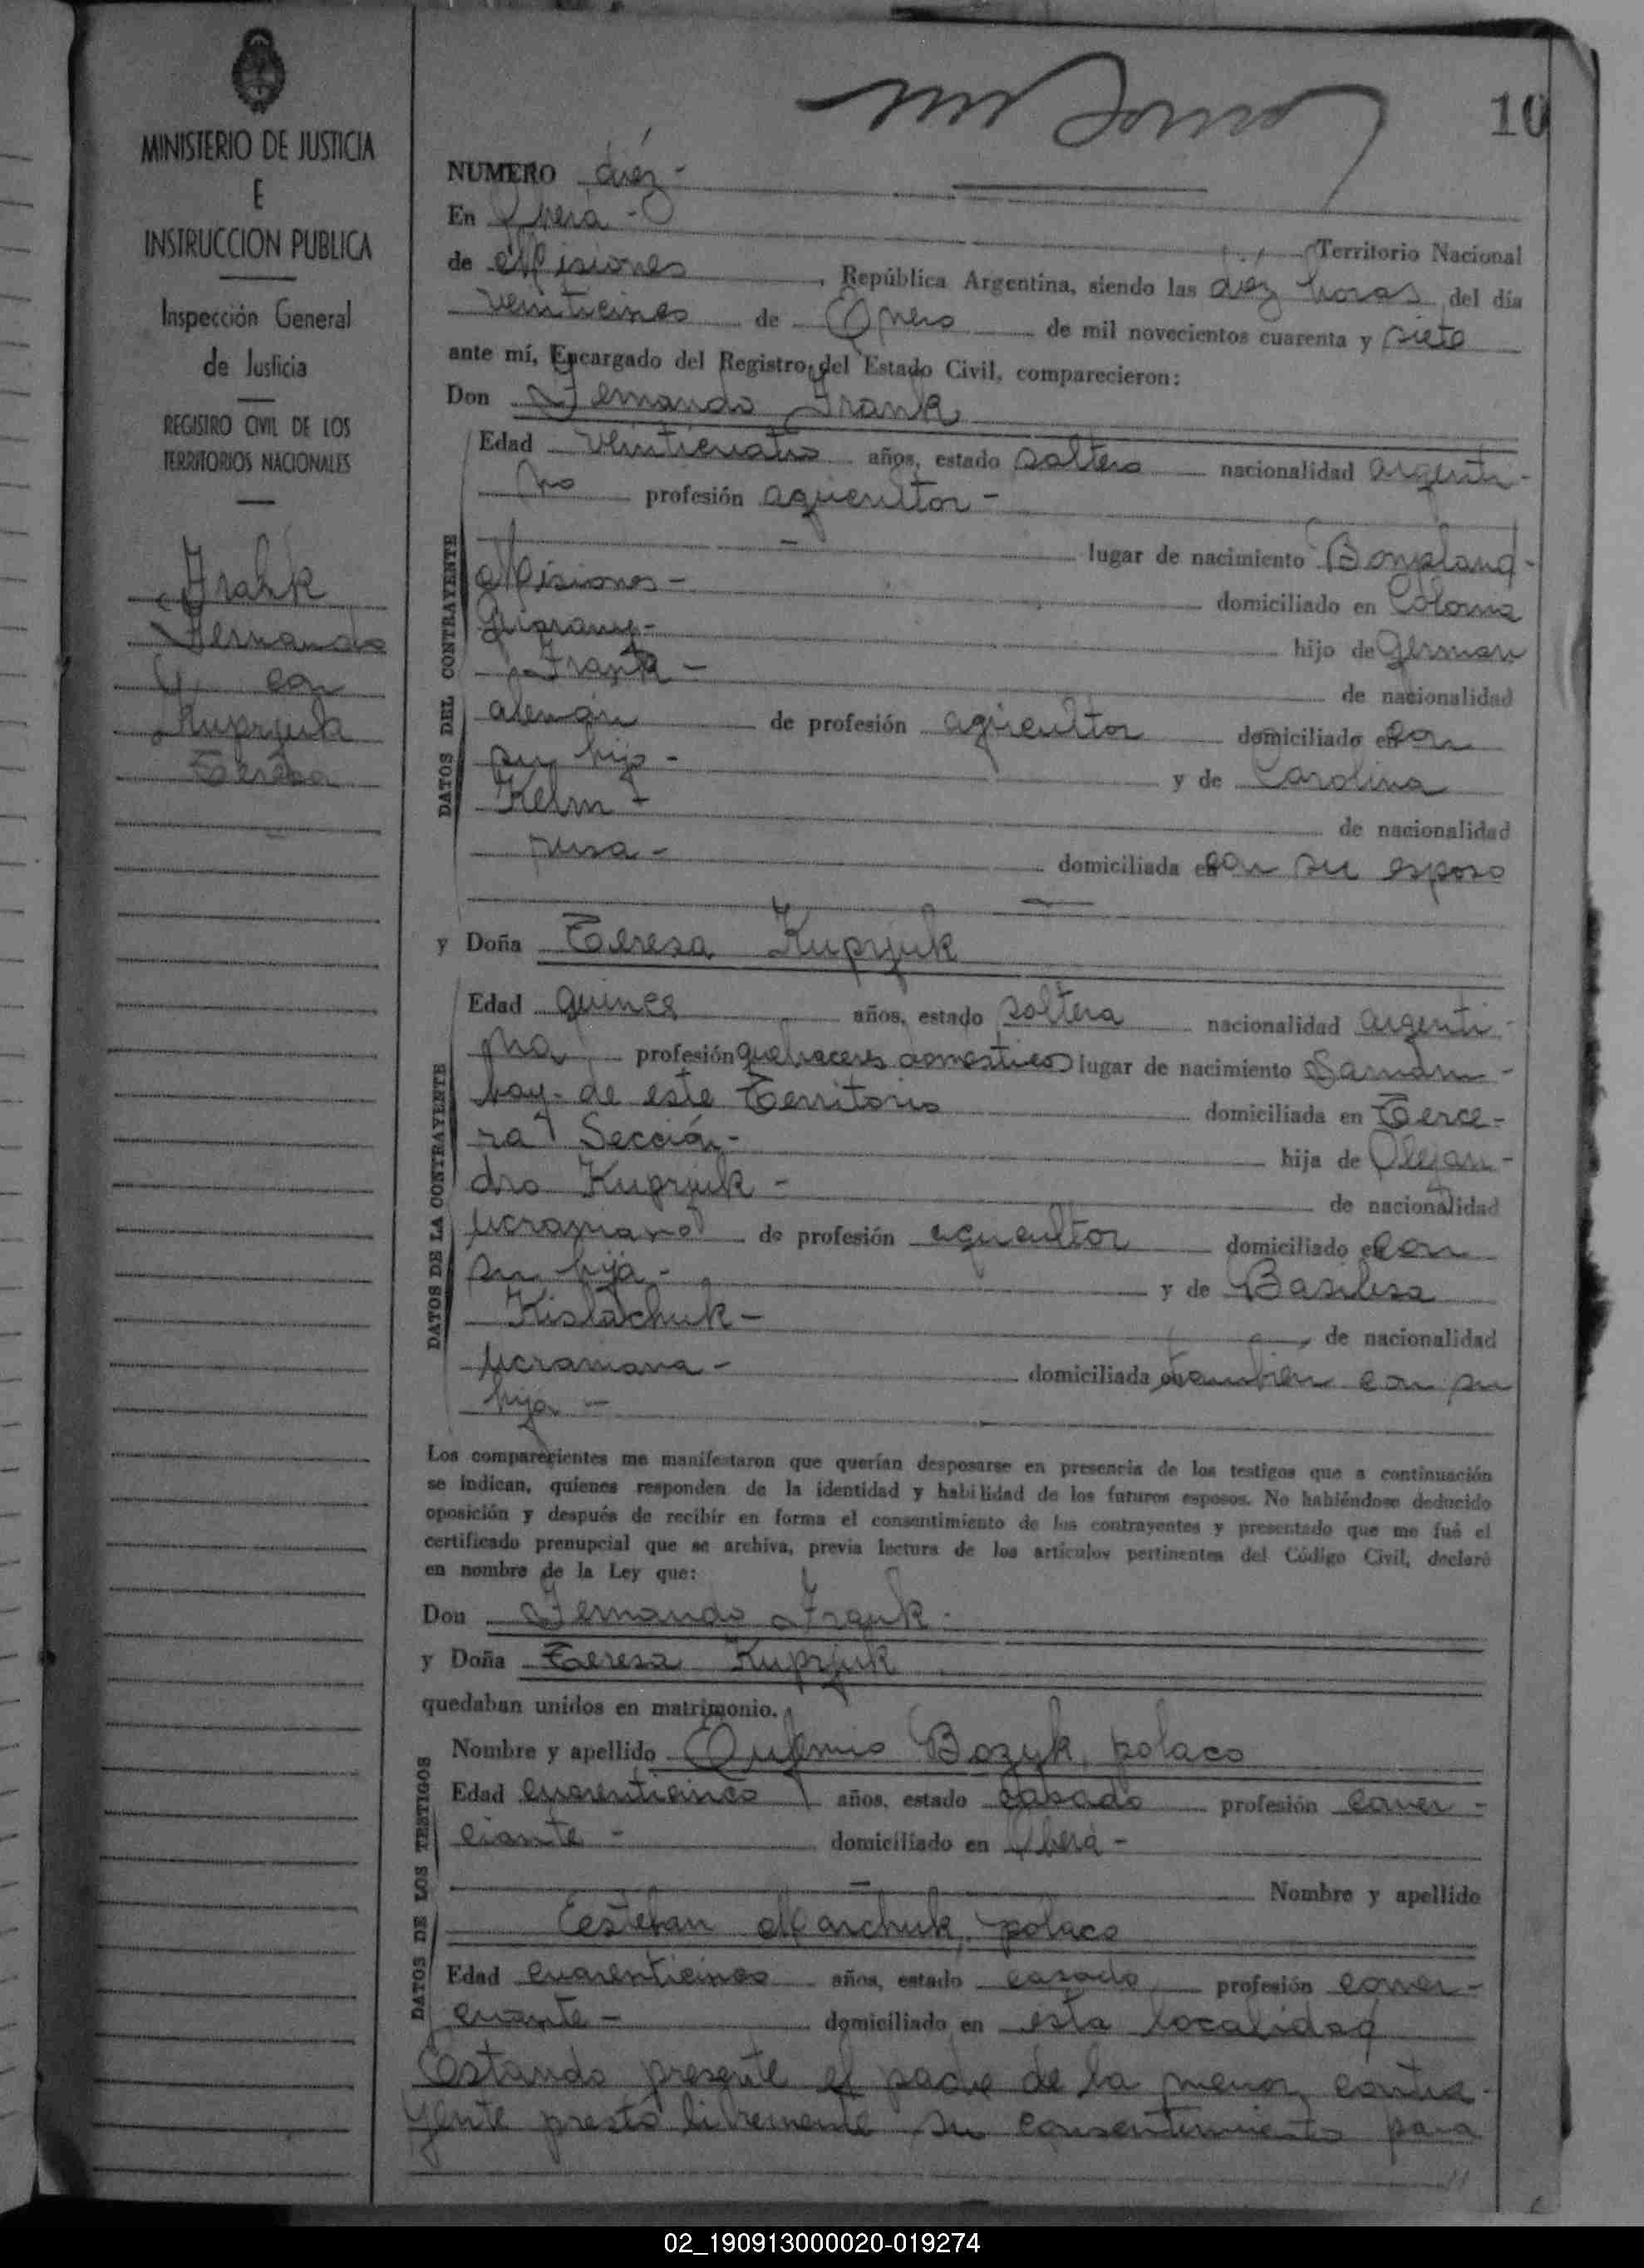 10
MINISTERIO DE JUSTICIA
E
INSTRUCCION PUBLICA
Inspección General
de Justicia
REGISTRO CIVIL DE LOS
TERRITORIOS NACIONALES
Frank
Fernando
y con
Kuprjuk
Teresa
NUMERO diez -
En Oberá -
Territorio Nacional
de Misiones, República Argentina, siendo las diez horas del día
veinticinco de Enero de mil novecientos cuarenta y siete
ante mí, Encargado del Registro del Estado Civil, comparecieron:
Don Fernando Frank
DATOS DEL CONTRAYENTE
Edad veinticuatro años, estado soltero nacionalidad argenti-
no profesión agricultor -
lugar de nacimiento Bonpland -
Misiones - domiciliado en Colonia
Guarany - hijo de German
Frank - de nacionalidad
alemán de profesión agricultor domiciliado en con
su hijo - y de Carolina
Kelm - de nacionalidad
rusa - domiciliada en con su esposo
y Doña Teresa Kuprjuk
DATOS DE LA CONTRAYENTE
Edad quince años, estado soltera nacionalidad argenti-
na profesión quehaceres domesticos lugar de nacimiento Samam-
bay - de este Territorio domiciliada en Terce-
ra Sección - hija de Alejan-
dro Kuprjuk - de nacionalidad
ucraniano de profesión agricultor domiciliado en con
su hija - y de Basilisa
Kislachuk - de nacionalidad
ucraniana - domiciliada en tambien con su
hija -
Los comparecientes me manifestaron que querían desposarse en presencia de los testigos que a continuación
se indican, quienes responden de la identidad y habilidad de los futuros esposos. No habiéndose deducido
oposición y después de recibir en forma el consentimiento de los contrayentes y presentado que me fué el
certificado prenupcial que se archiva, previa lectura de los artículos pertinentes del Código Civil, declaré
en nombre de la Ley que:
Don Fernando Frank -
y Doña Teresa Kuprjuk
quedaban unidos en matrimonio.
DATOS DE LOS TESTIGOS
Nombre y apellido Eufemio Bozyk, polaco
Edad cuarenticinco años, estado casado profesión comer-
ciante - domiciliado en Oberá -
Nombre y apellido
Estefan Marchuk, polaco
Edad cuarenticinco años, estado casado profesión comer-
ciante - domiciliado en esta localidad
Estando presente el padre de la menor contra-
yente prestó libremente su consentimiento para
02_190913000020-019274